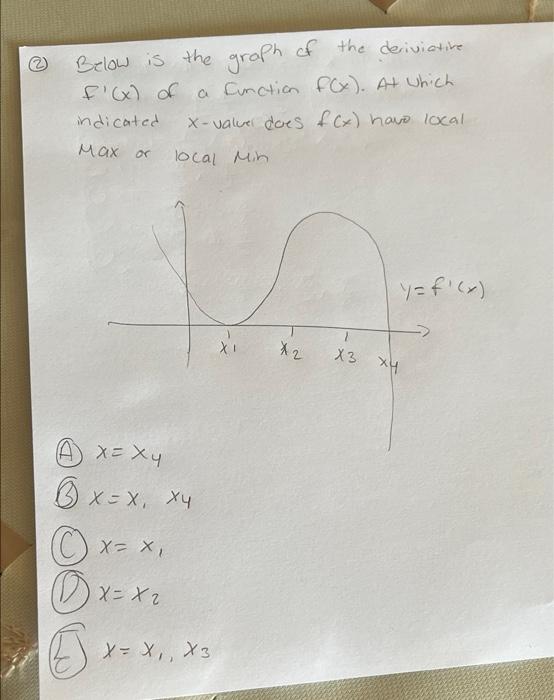 ② Below is the graph of the deriviative
f'(x) of a function f(x). At which
indicated x-value does f(x) have local
Max or local Min
y=f'(x)
x1 x2 x3 x4
Ⓐ x = x4
Ⓑ x = x1 x4
Ⓒ x = x1
Ⓓ x = x2
Ⓔ x = x1, x3